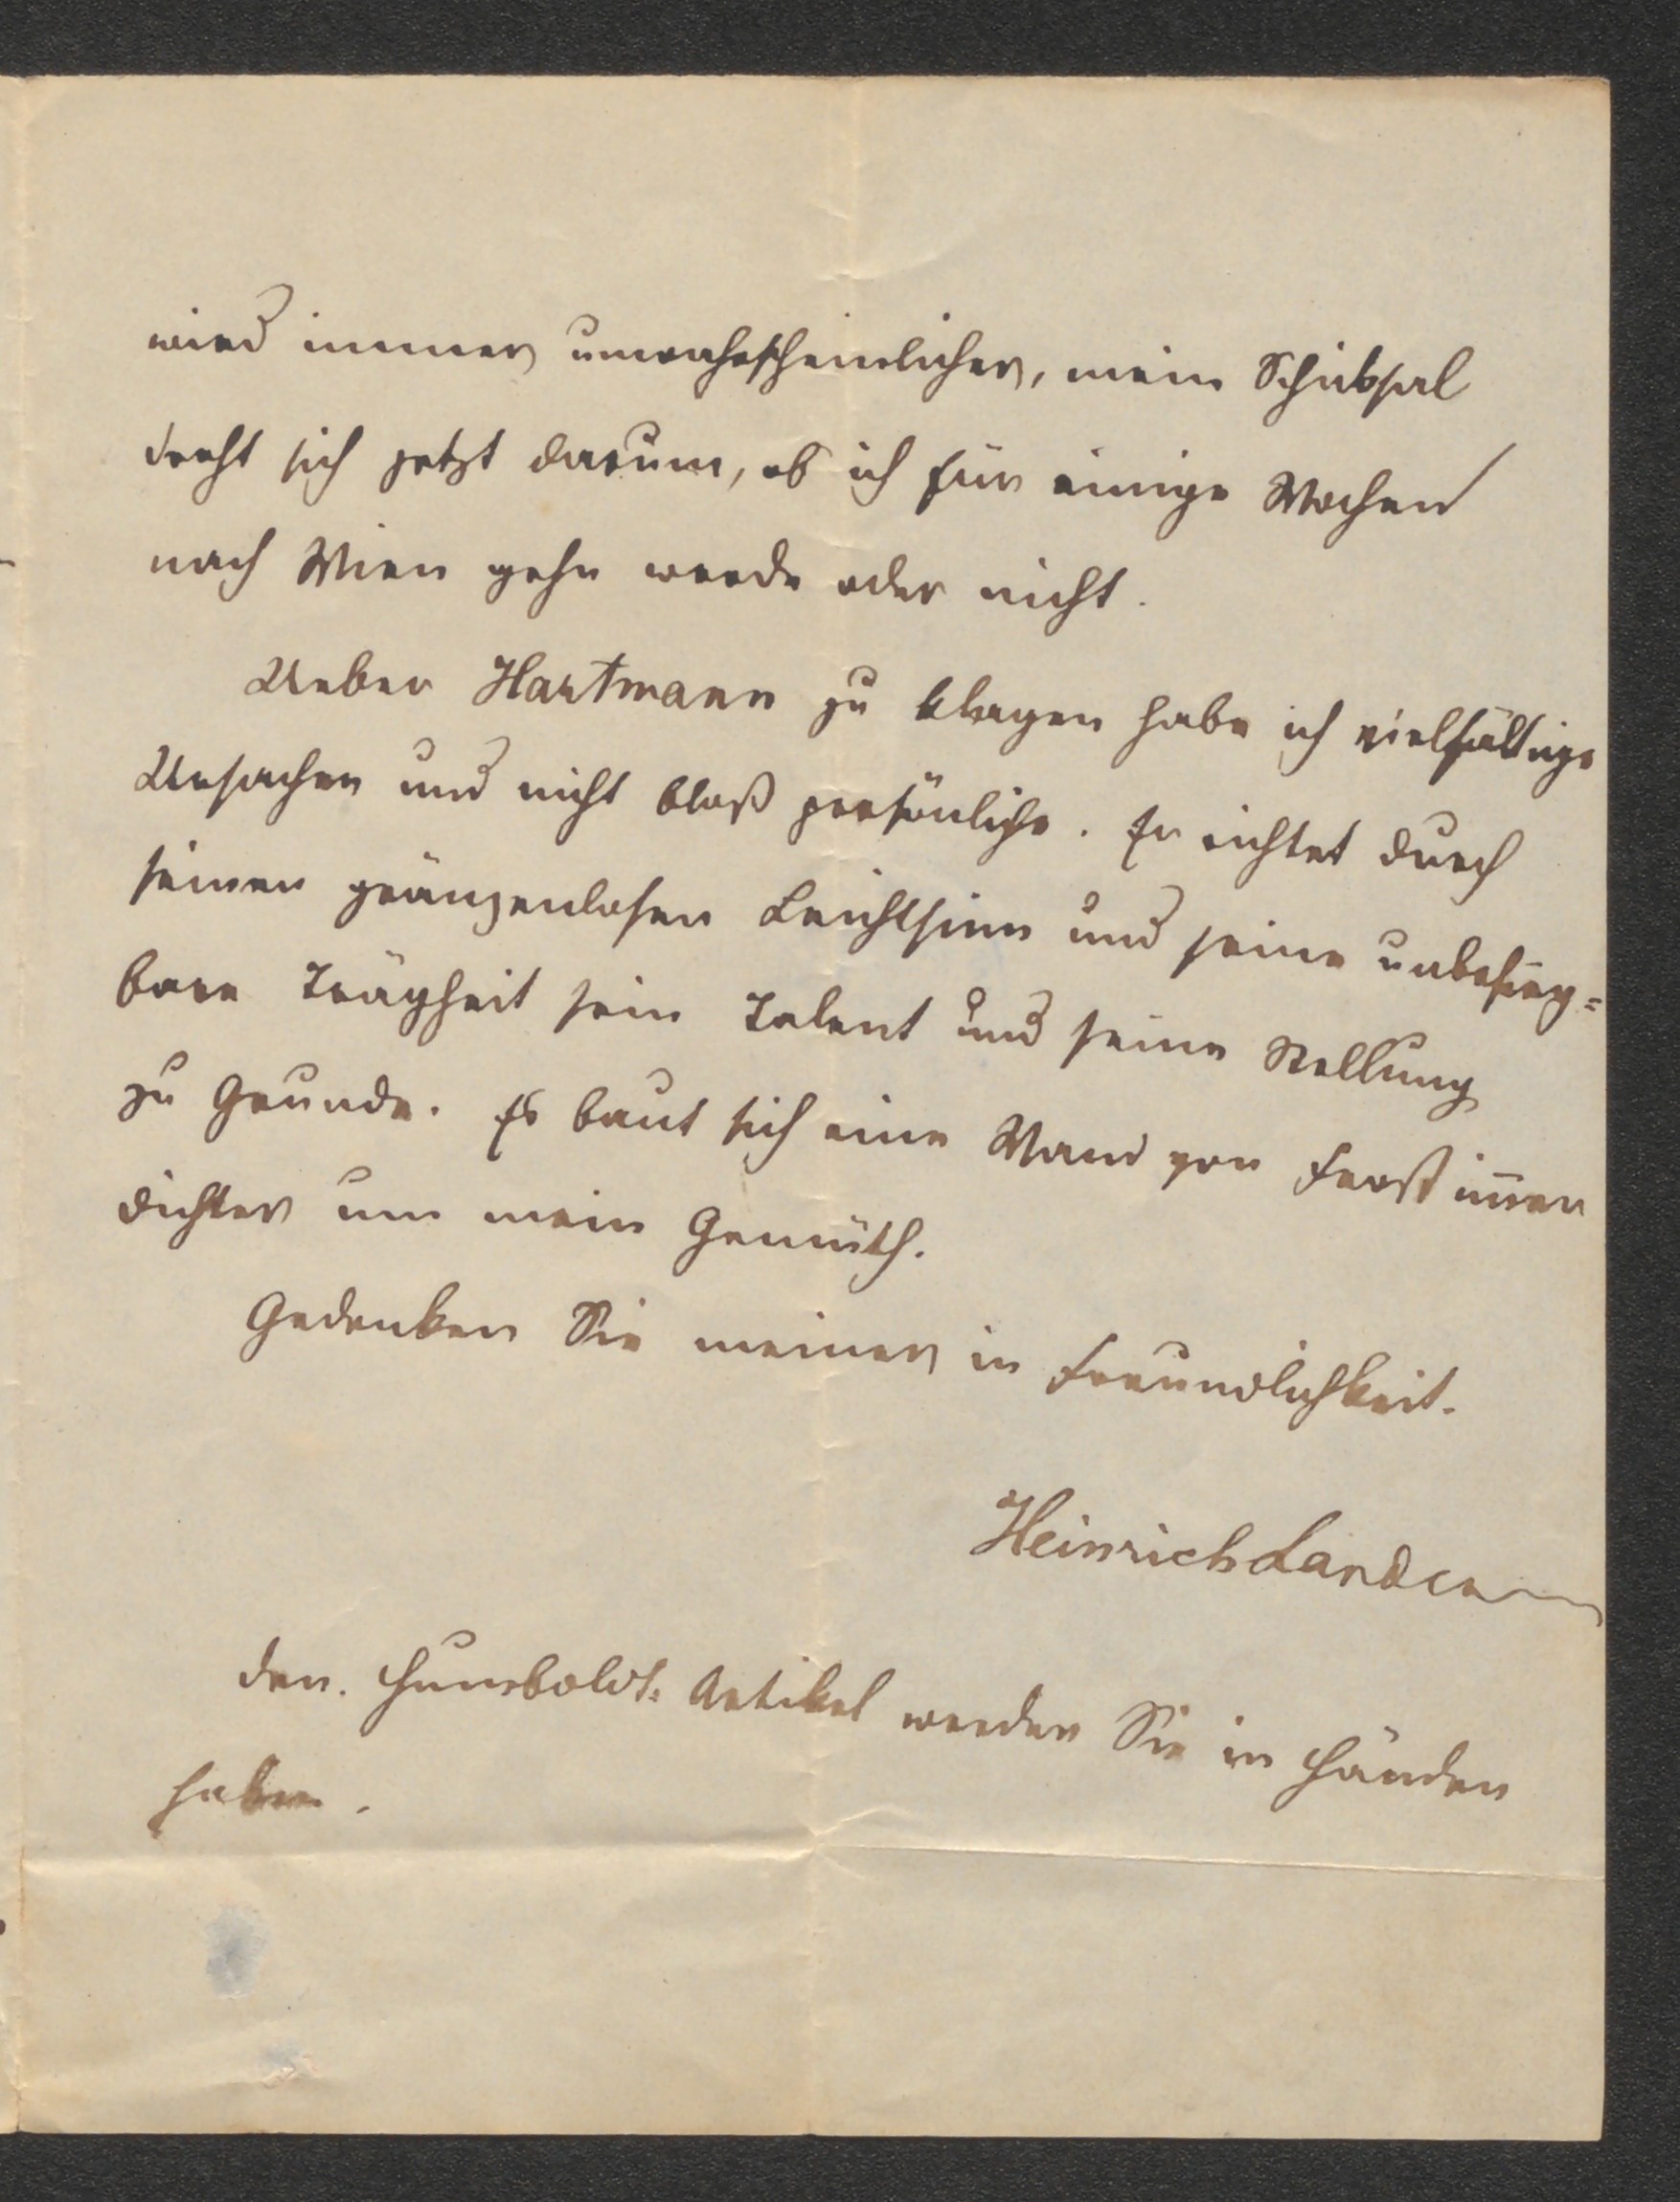 wird immer unwahrscheinlicher, mein Schicksal
dreht sich jetzt darum, ob ich für einige Wochen
nach Wien gehn werde oder nicht.
Ueber Hartmann zu klagen habe ich vielfältige
Ursachen und nicht bloß persönliche. Er richtet durch
seinen gränzenlosen Leichtsinn und seine unbesieg=
bare Trägheit sein Talent und seine Stellung
zu Grunde. Es baut sich eine Wand von Frost im̅er
dichter um mein Gemüth.
Gedenken Sie meiner in Freundlichkeit.
Heinrich Landesmann
Den Humboldt-Artikel werden Sie in Händen
haben.